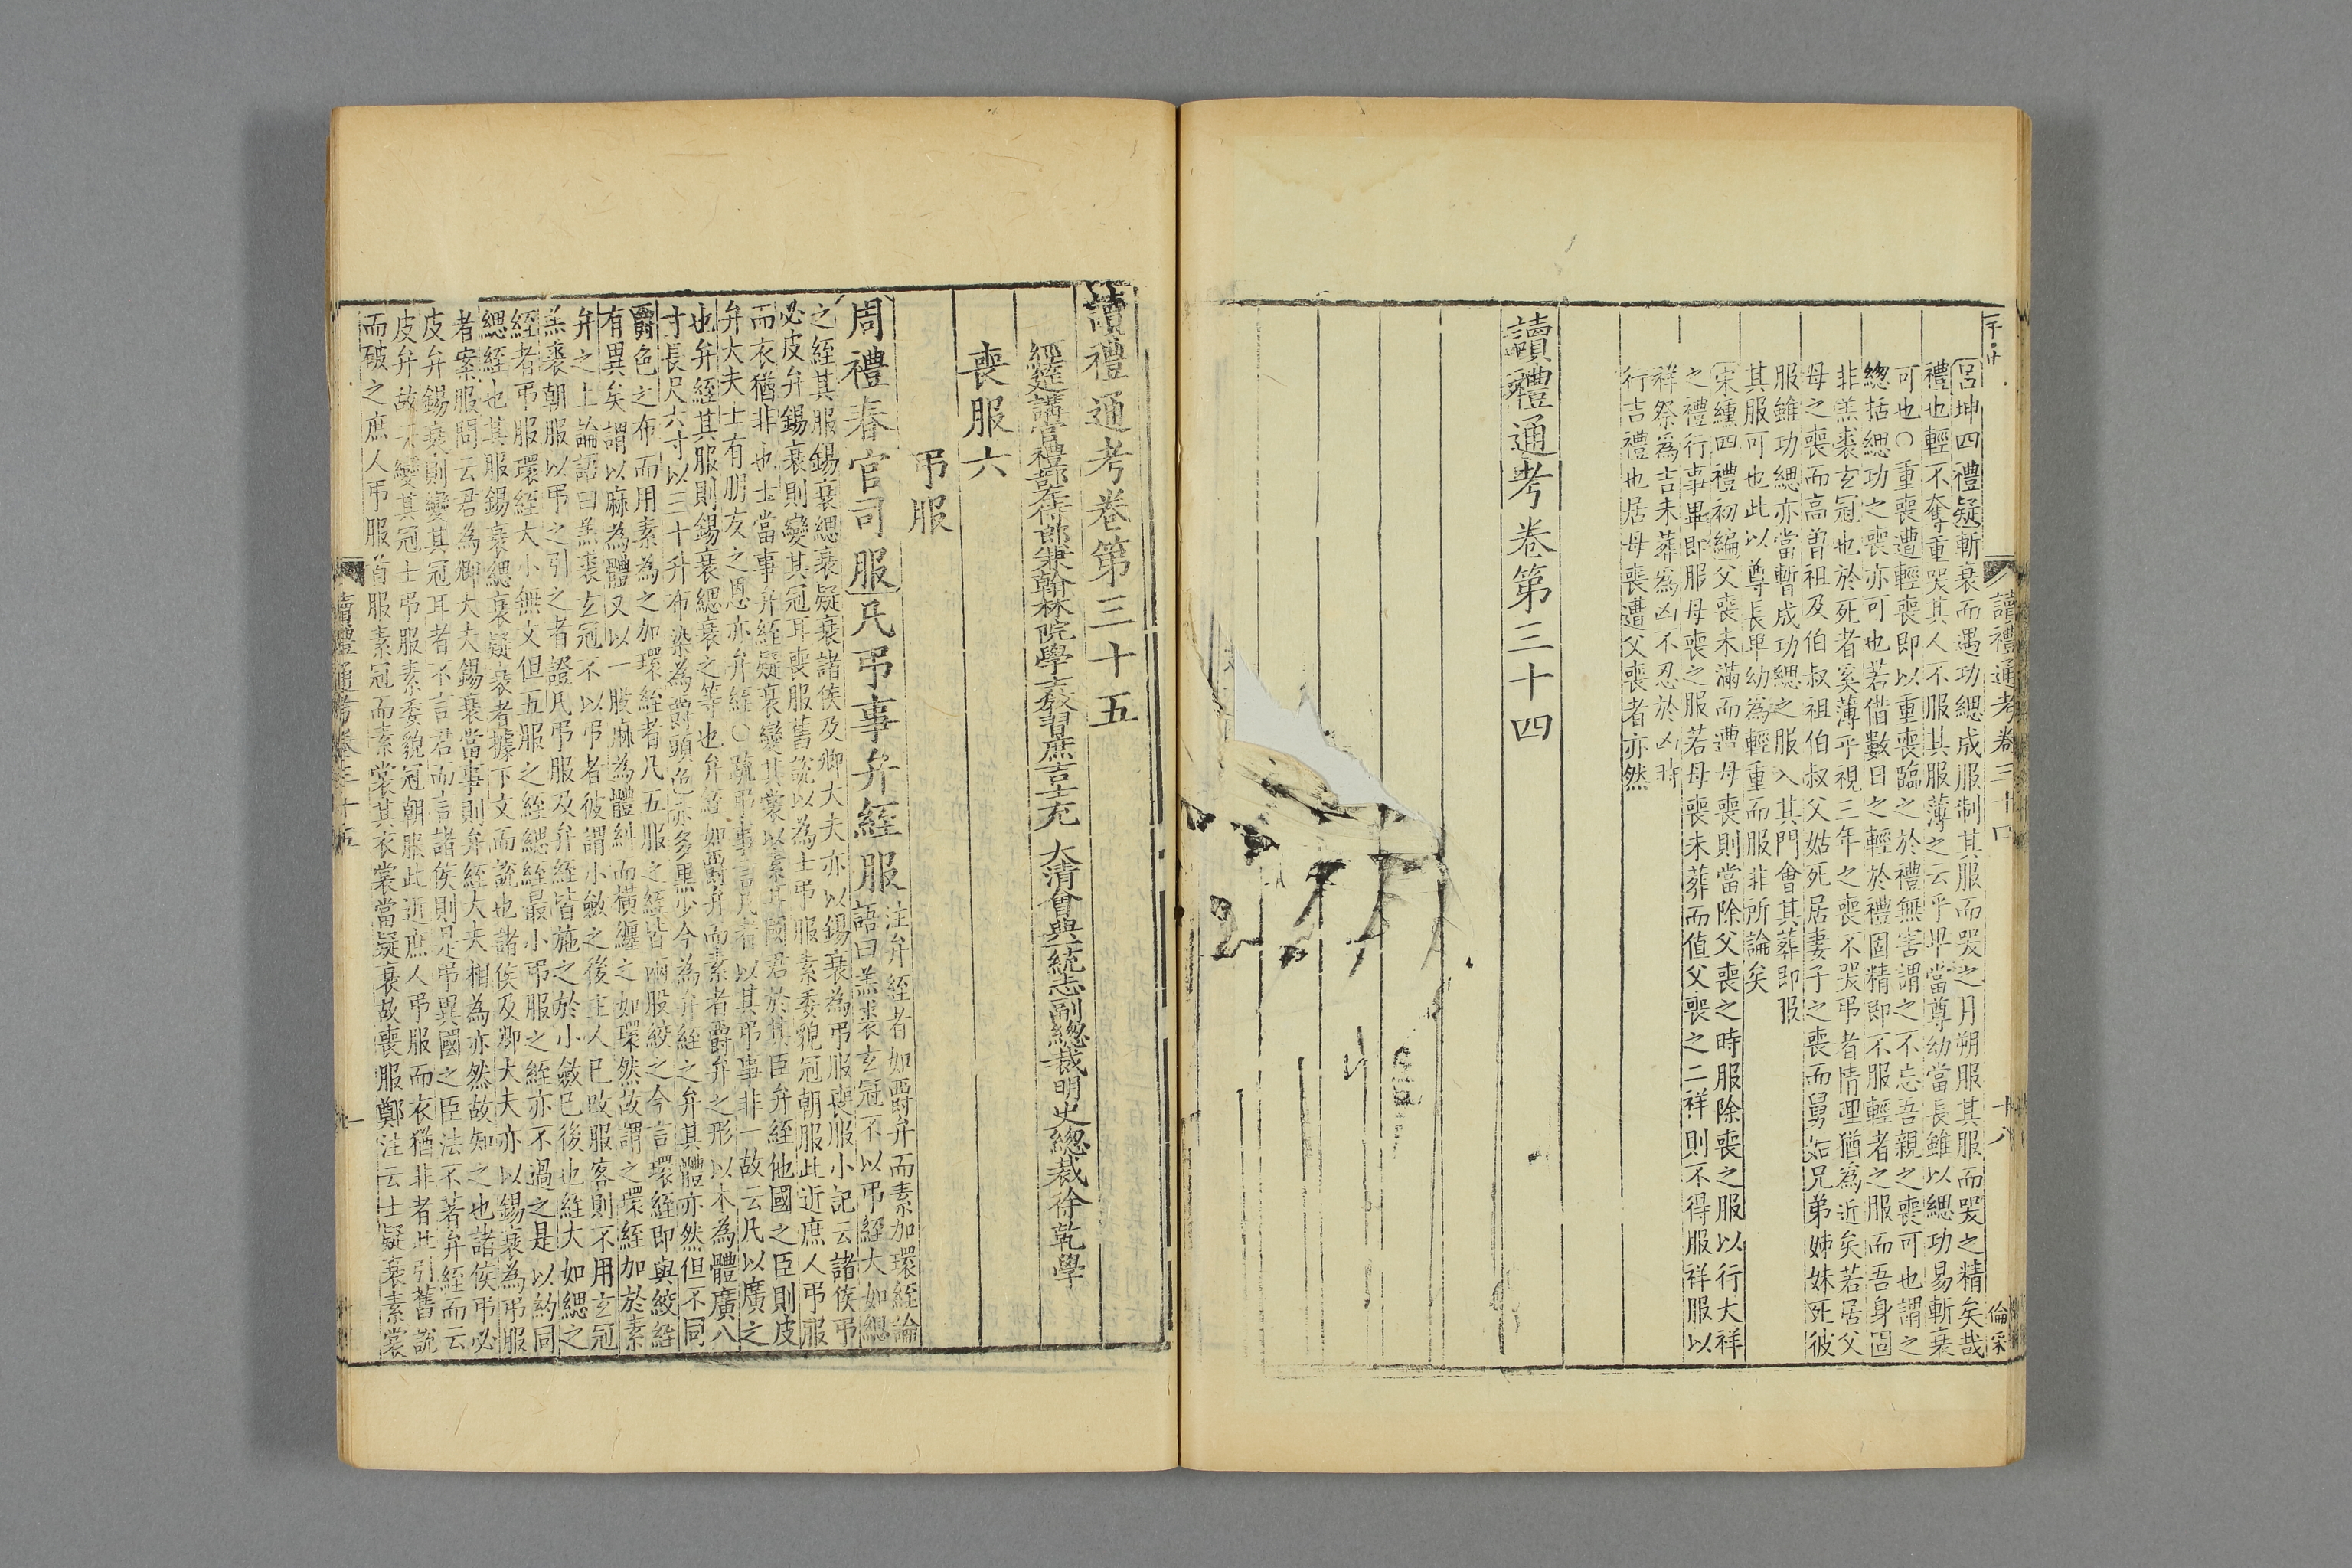 呂坤四禮疑斬衰而遇功緦成服制其服而哭之月朔服其服而哭之精矣哉
禮也輕不奪重哭其人不服其服薄之云乎卑當尊幼當長雖以緦功易斬衰
可也○重喪遭輕喪即以重喪臨之於禮無害謂之不忘吾親之喪可也謂之
總括緦功之喪亦可也若借數日之輕於禮固精即不服輕者之服而吾身固
非羔裘玄冠也於死者奚薄乎視三年之喪不哭弔者情理猶為近矣若居父
母之喪而高曽祖及伯叔祖伯叔父姑死居妻子之喪而舅姑兄弟姊妹死彼
服雖功緦亦當暫成功緦之服入其門會其葬即服
其服可也此以尊長卑幼為輕重而服非所論矣
宋纁四禮初編父喪未滿而遭母喪則當除父喪之時服除喪之服以行大祥
之禮行事畢即服母喪之服若母喪未葬而值父喪之二祥則不得服祥服以
祥祭為吉未葬為凶不忍於凶時
行吉禮也居母喪遭父喪者亦然
讀禮通考卷第三十四
讀禮通考卷三十四
十八
讀禮通考卷第三十五
經筵講官禮部左侍郎兼翰林院學士教習庶吉士充 大清會典一統志副總裁明史總裁徐乾學
喪服六
弔服
周禮春官司服凡弔事弁絰服
注弁絰者如爵弁而素加環絰論
語曰羔裘玄冠不以弔絰大如緦
之絰其服錫衰緦衰疑衰諸侯及卿大夫亦以錫衰為弔服喪服小記云諸侯弔
必皮弁錫衰則變其冠耳喪服舊說以為士弔服素委貌冠朝服此近庶人弔服
而衣猶非也士當事弁絰疑衰變其裳以素耳國君於其臣弁絰他國之臣則皮
弁大夫士有朋友之恩亦弁絰○疏弔事言凡者以其弔事非一故云凡以廣之
也弁絰其服則錫衰緦衰之等也弁絰如爵弁而素者爵弁之形以木為體廣八
寸長尺六寸以三十升布染為爵頭色赤多黑少今為弁絰之弁其體亦然但不同
爵色之布而用素為之加環絰者凡五服之絰皆兩股絞之今言環絰即與絞絰
有異矣謂以麻為體又以一股麻為體糾而橫纏之如環然故謂之環絰加於素
弁之上論語曰羔裘玄冠不以弔者彼謂小斂之後主人已改服客則不用玄冠
羔裘朝服以弔之引之者證凡弔服及弁絰皆施之於小斂已後也絰大如緦之
絰者弔服環絰大小無文但五服之絰緦絰最小弔服之絰亦不過之是以約同
緦絰也其服錫衰緦衰疑衰者據下文而說也諸侯及卿大夫亦以錫衰為弔服
者案服問云君為卿大夫錫衰當事則弁絰大夫相為亦然故知之也諸侯弔必
皮弁錫衰則變其冠耳者不言君而言諸侯則是弔異國之臣法不著弁絰而云
皮弁故云變其冠士弔服素委貌冠朝服此近庶人弔服而衣猶非者此引舊說
而破之庶人弔服首服素冠而素裳其衣裳當疑衰故喪服鄭注云士疑衰素裳
讀禮通考卷三十五
一